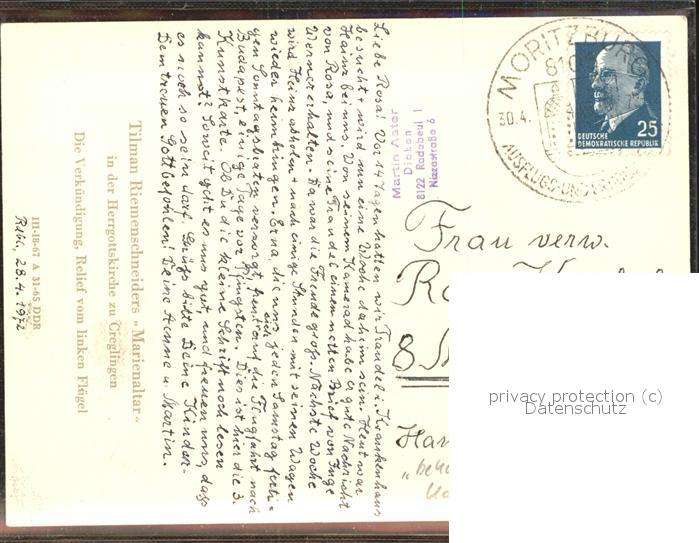 Liebe Rosa! Vor 14 Tagen hatten wir Traudel i. Krankenhaus
besucht + wird nun eine Woche daheim sein. Heut war
Heinz bei uns. Von seinem Kamerad habe er gute Nachricht
von Rosa, und seine Traudel einen netten Brief von Inge
Werner erhalten. Da war die Freude groß. Nächste Woche
wird Heinz abholen + nach einige Stunden mit seinen Wagen
wieder heimbringen. Erna die uns jeden Samstag ferti-
gen Sonntagsbraten versorgt, freut sich auf die Flugfahrt nach
Budapest, einige Tage vor Pfingsten. Dies ist hier die 3.
Kunstkarte. Ob Du die kleine Schrift noch lesen
kannst? Soweit geht es uns gut und freuen uns, daß
es noch so sein darf. Grüße bitte Deine Kinder-
Dem treuen Gott befohlen! Deine Hanne u. Martin.
Tilman Riemenschneiders »Marienaltar«
in der Herrgottskirche zu Creglingen
Die Verkündigung, Relief vom linken Flügel
III-18-67 A 31-65 DDR
28.4.1972
Martin
Diakon i.
8122 Radebeul 1
Nizzastraße 6
MORITZBURG
810
30.4.
AUSFLUGS-UND
DEUTSCHE
DEMOKRATISCHE REPUBLIK
25
Frau verw.
8
privacy protection (c)
Datenschutz